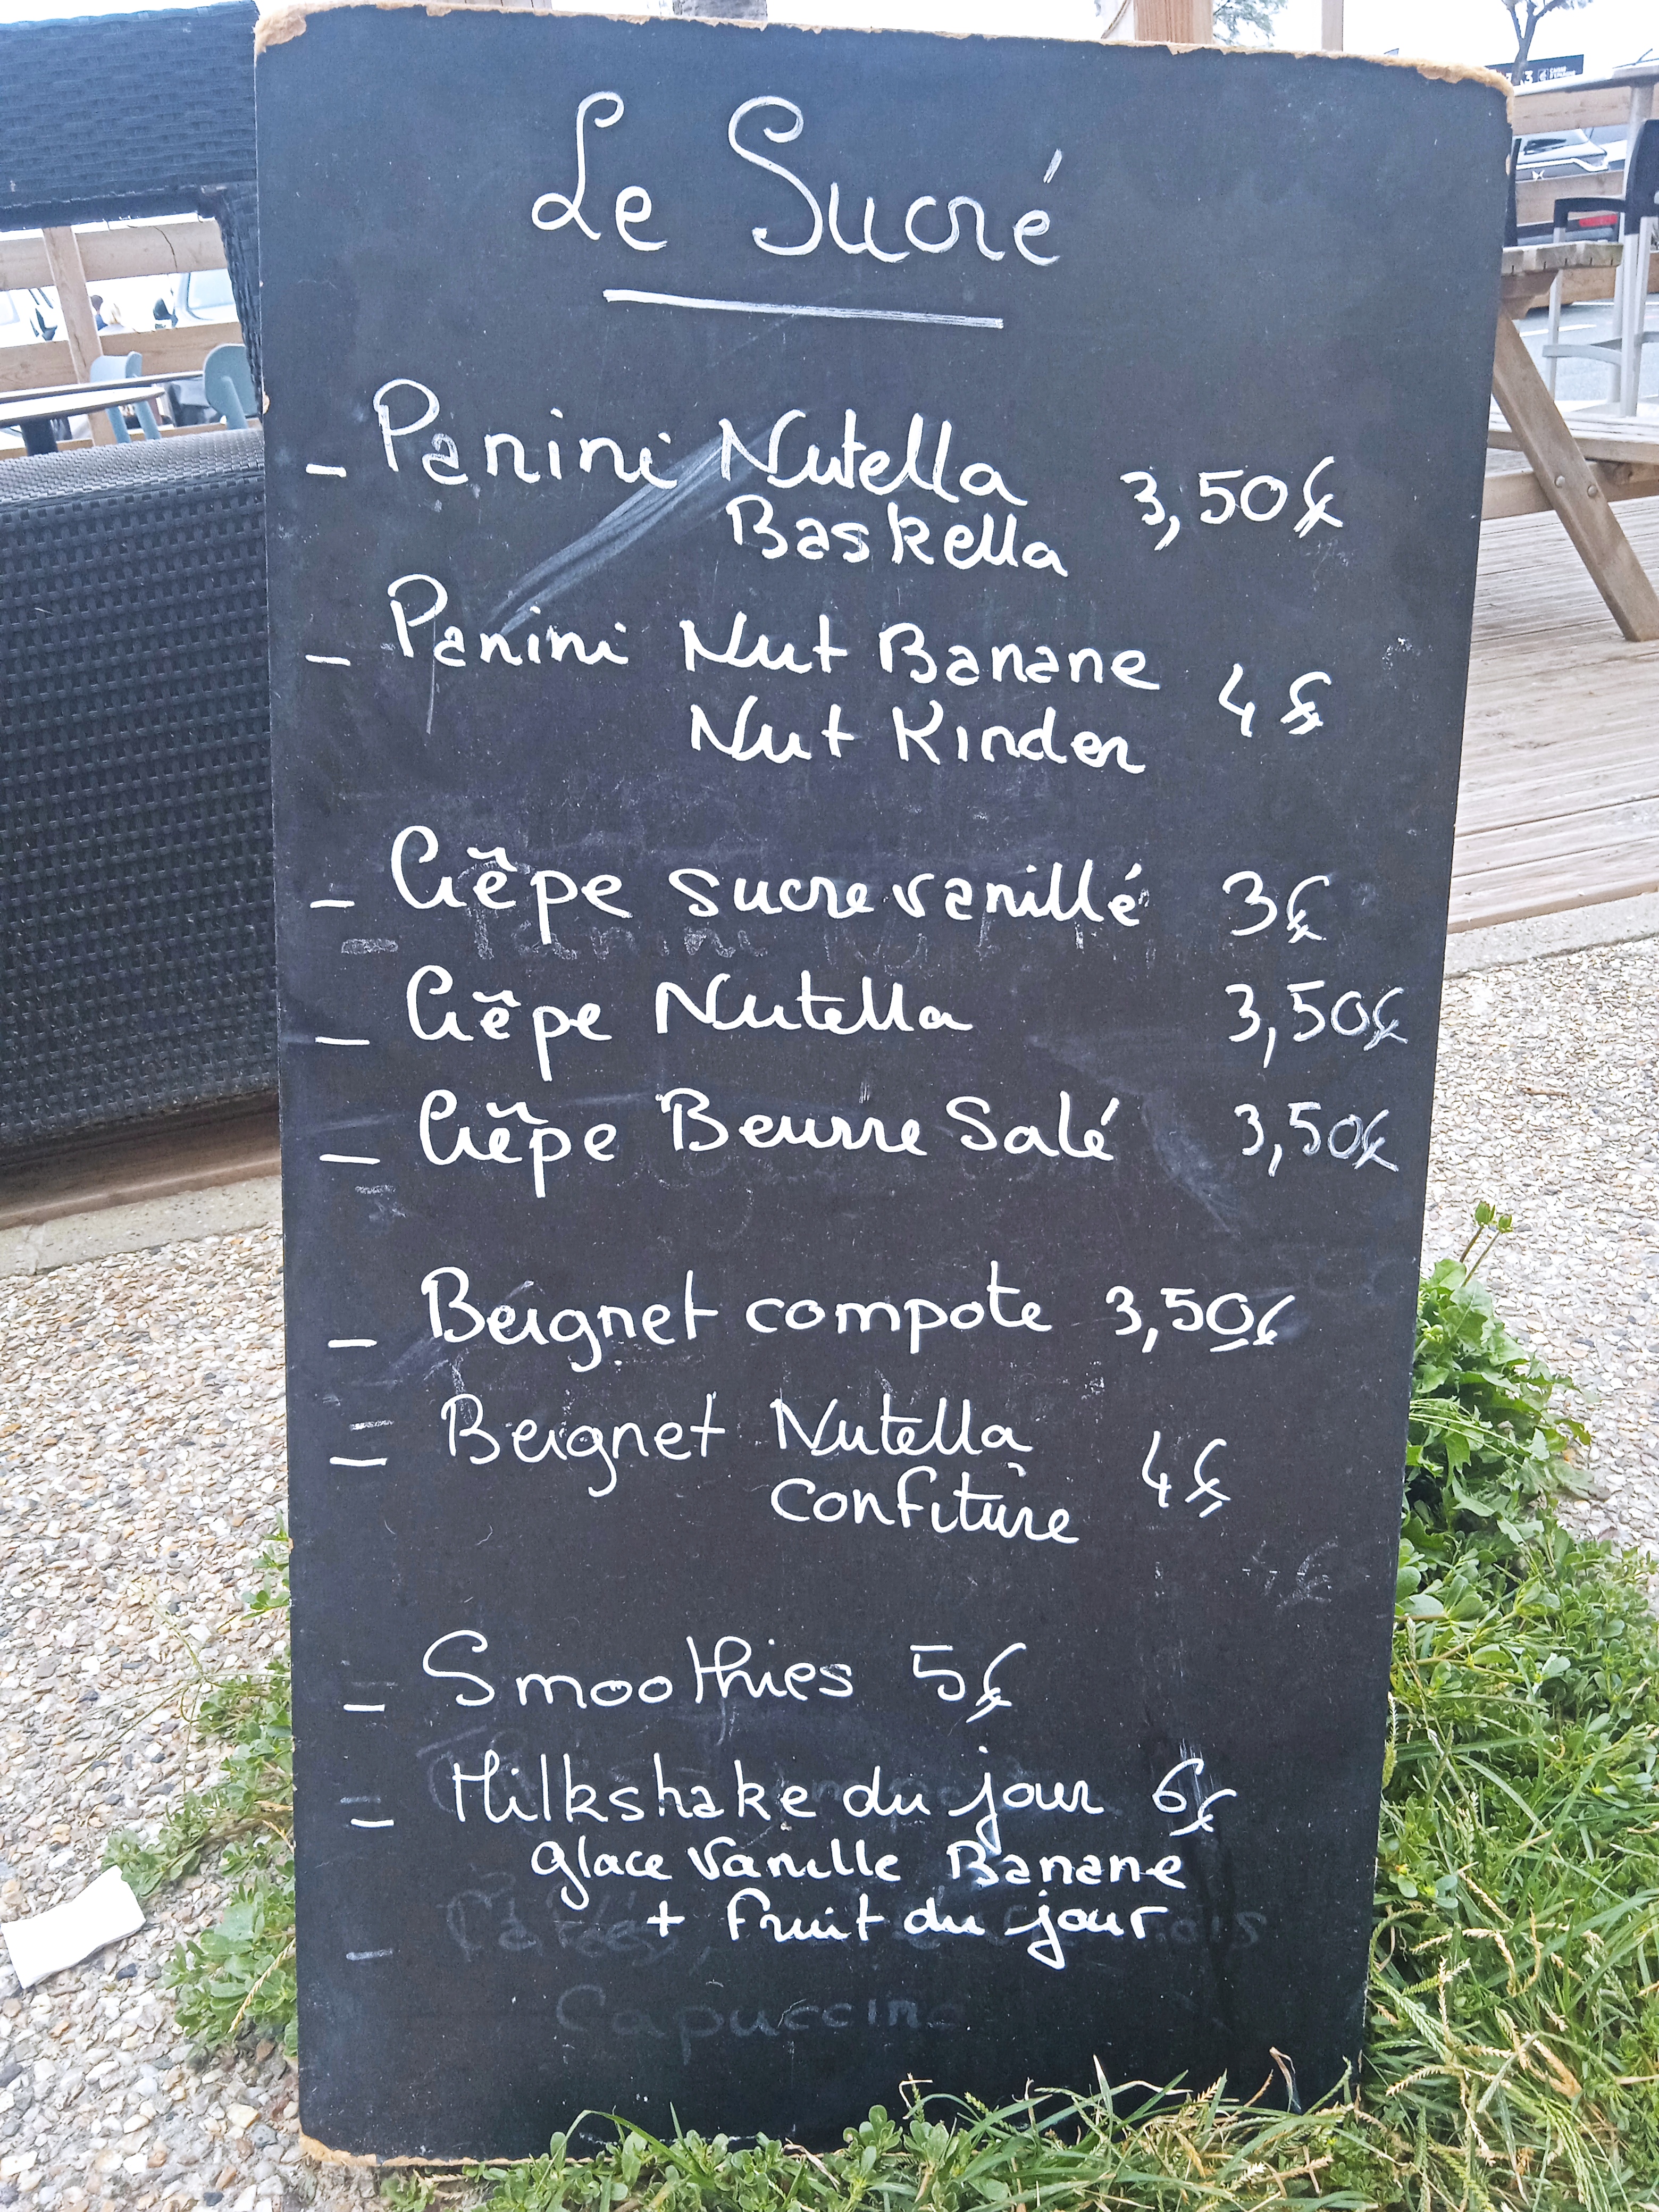 Le Sucré
- Panini Nutella 3,50€
Baskella
- Panini Nut Banane 4€
Nut Kinder
- Crêpe sucre vanillé 3€
- Crêpe Nutella 3,50€
- Crêpe Beurre Salé 3,50€
- Beignet compote 3,50€
- Beignet Nutella 4€
confiture
- Smoothies 5€
- Milkshake du jour 6€
glace vanille Banane
+ fruit du jour
Capuccino